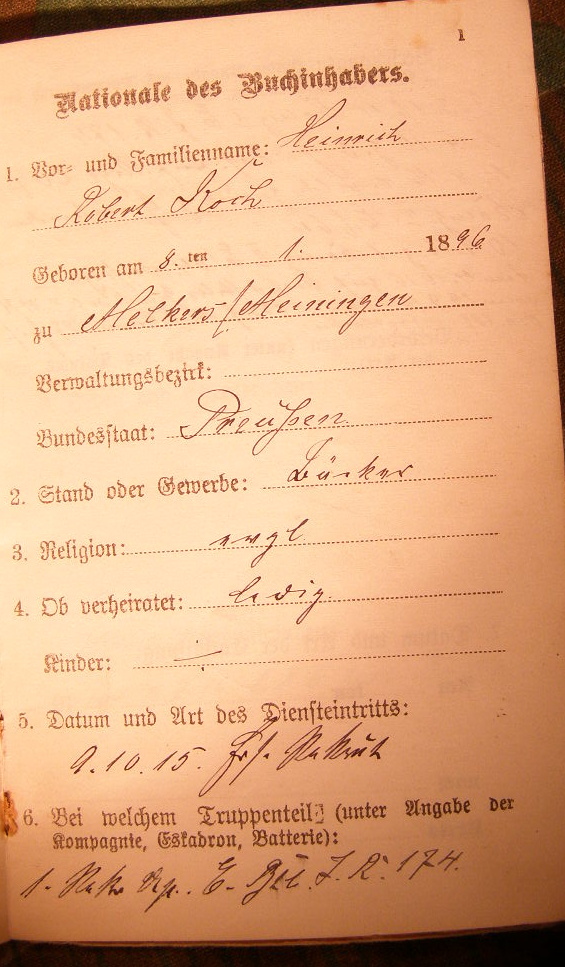 1
Nationale des Buchinhabers.
1. Vor- und Familienname: Heinrich
Robert Koch
Geboren am 8. ten 1. 1896
zu Melkers/Meiningen
Verwaltungsbezirk:
Bundesstaat: Preußen
2. Stand oder Gewerbe: Bäcker
3. Religion: evgl
4. Ob verheiratet: ledig
Kinder: ./.
5. Datum und Art des Diensteintritts:
9.10.15. Ers. Rekrut
6. Bei welchem Truppenteil (unter Angabe der
Kompagnie, Eskadron, Batterie):
1. Rekr. Kp. E. Btl. I. R. 174.